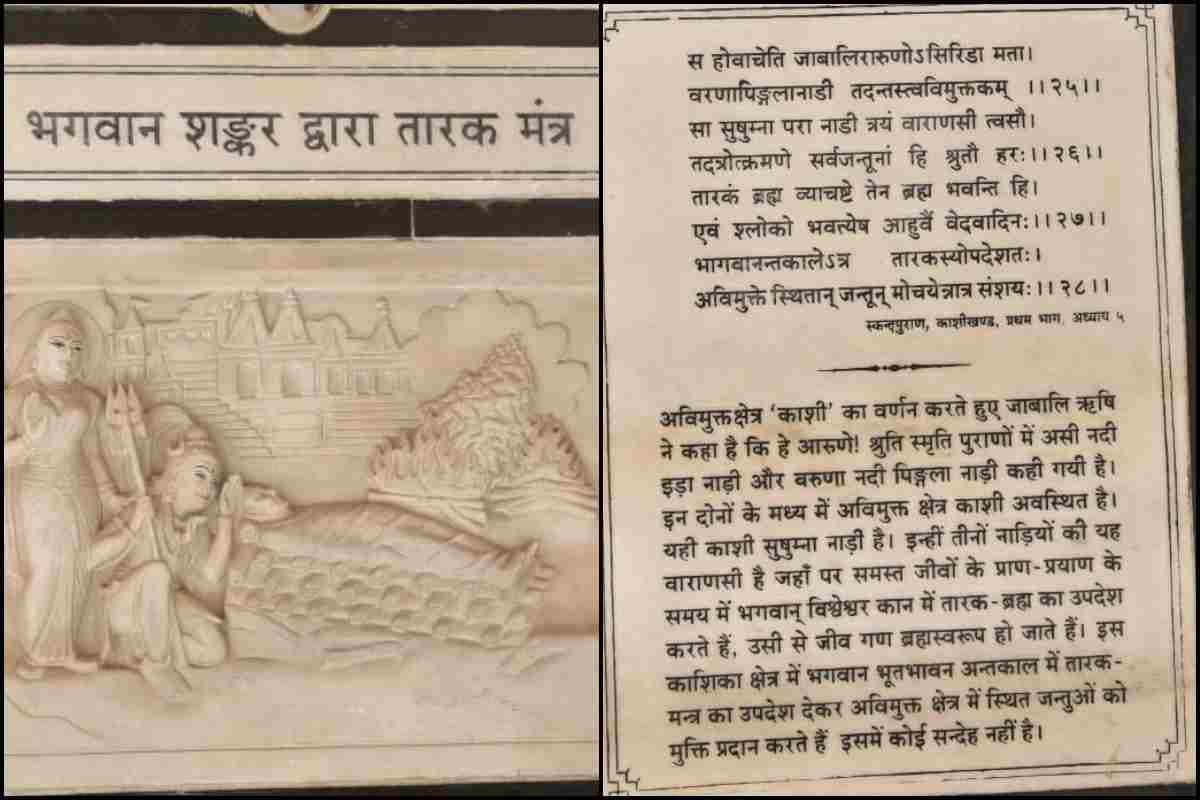 भगवान शङ्कर द्वारा तारक मंत्र
स होवाचेति जाबालिरारुणोऽसिरिडा मता।
वरणापिङ्गलानाडी तदन्तस्त्वविमुक्तकम् ।।२५।।
सा सुषुम्ना परा नाडी त्रयं वाराणसी त्वसौ।
तदत्रोत्क्रमणे सर्वजन्तूनां हि श्रुतौ हरः।।२६।।
तारकं ब्रह्म व्याचष्टे तेन ब्रह्म भवन्ति हि।
एवं श्लोको भवत्येष आहुर्वै वेदवादिनः।।२७।।
भागवानन्तकालेऽत्र तारकस्योपदेशतः।
अविमुक्ते स्थितान् जन्तून् मोचयेन्नात्र संशयः।।२८।।
स्कन्दपुराण, काशीखण्ड, प्रथम भाग, अध्याय ५
अविमुक्तक्षेत्र ‘काशी’ का वर्णन करते हुए जाबालि ऋषि
ने कहा है कि हे आरुणे! श्रुति स्मृति पुराणों में असी नदी
इड़ा नाड़ी और वरुणा नदी पिङ्गला नाड़ी कही गयी है।
इन दोनों के मध्य में अविमुक्त क्षेत्र काशी अवस्थित है।
यही काशी सुषुम्ना नाड़ी है। इन्हीं तीनों नाड़ियों की यह
वाराणसी है जहाँ पर समस्त जीवों के प्राण-प्रयाण के
समय में भगवान् विश्वेश्वर कान में तारक-ब्रह्म का उपदेश
करते हैं, उसी से जीव गण ब्रह्मस्वरूप हो जाते हैं। इस
काशिका क्षेत्र में भगवान भूतभावन अन्तकाल में तारक-
मन्त्र का उपदेश देकर अविमुक्त क्षेत्र में स्थित जन्तुओं को
मुक्ति प्रदान करते हैं इसमें कोई सन्देह नहीं है।